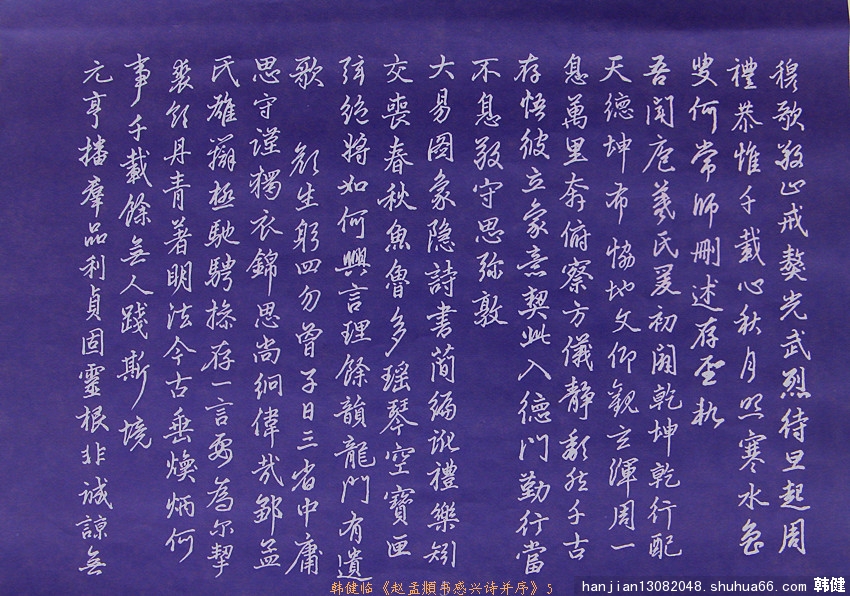 穆歌敬止戒獒光武烈待旦起周
禮恭惟千載心秋月照寒水魯
叟何常師刪述存聖軌
吾聞庖羲氏爰初闢乾坤乾行配
天德坤布協地文仰觀玄渾周一
息萬里奔俯察方儀靜頹然千古
存悟彼立象意契此入德門勤行當
不息敬守思弥敦
大易圖象隐詩書簡編訛禮樂矧
交喪春秋魚魯多瑶琴空寶匣
弦絕將如何興言理餘韻龍門有遺
歌 顔生躬四勿曾子日三省中庸
思守謹獨衣錦思尚絅偉哉鄒孟
氏雄辯極馳騁操存一言要為尔挈
裘領丹青著明法今古垂煥炳何
事千載餘無人踐斯境
元亨播群品利貞固靈根非誠諒無
韩健临《赵孟頫书感兴诗并序》5
hanjian13082048.shuhua66.com 韩健